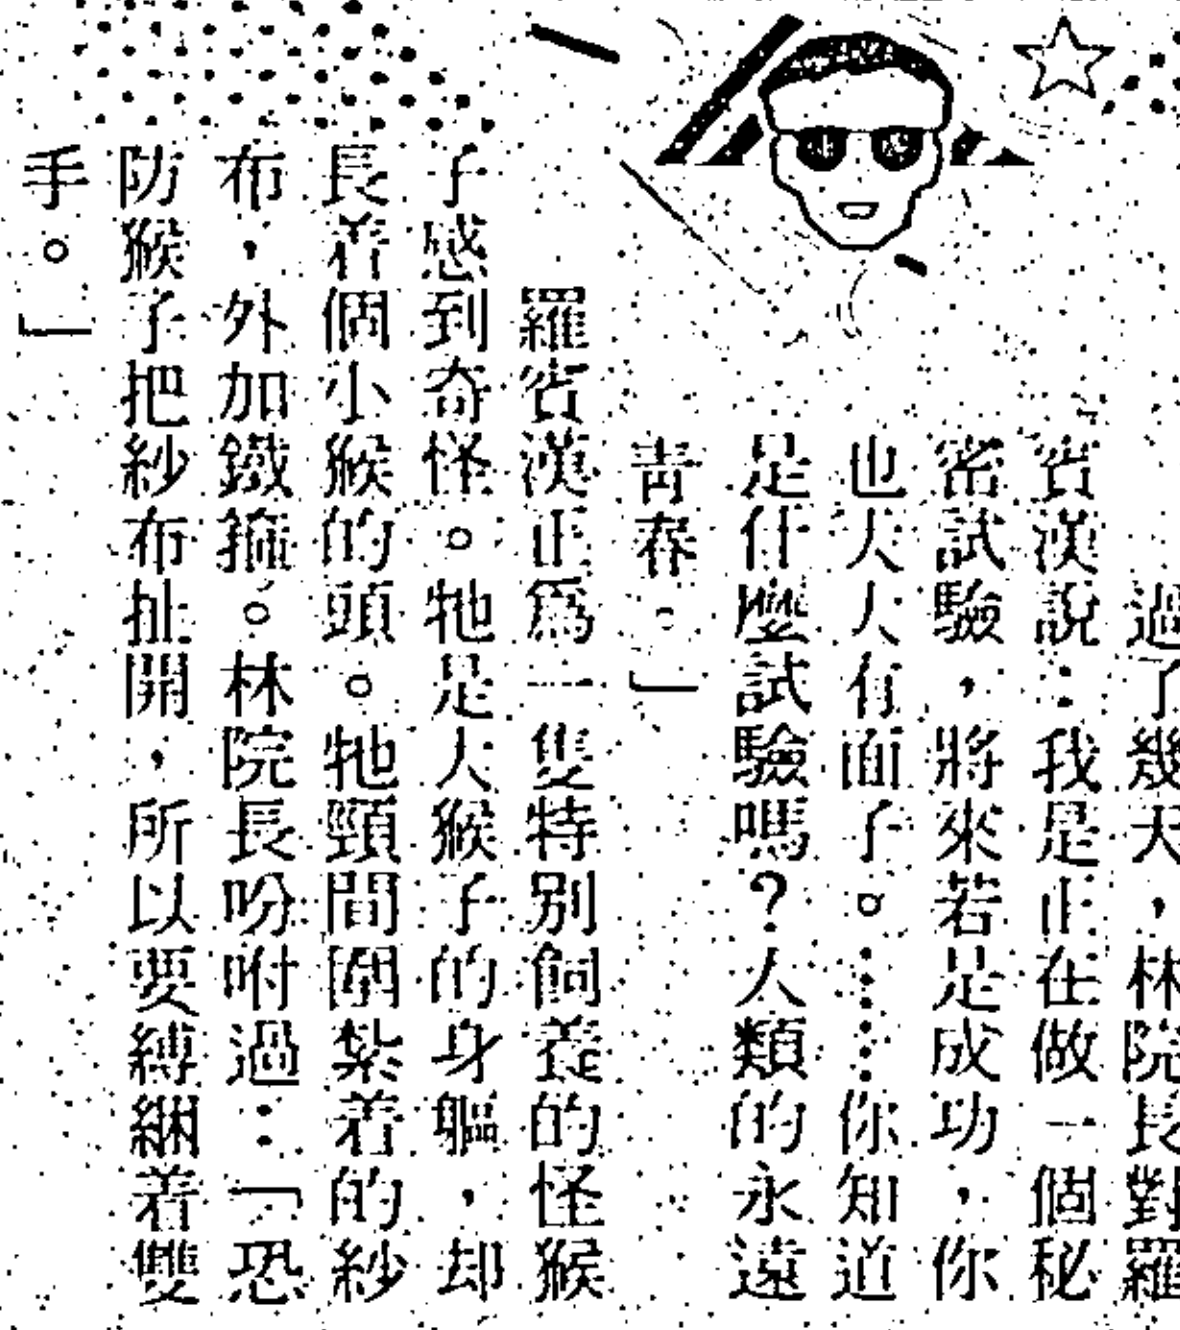 過了幾天，林院長對羅
賓漢說：我是正在做一個秘
密試驗，將來若是成功，你
也人人有面子。……你知道
是什麼試驗嗎？人類的永遠
青春。」
羅賓漢正爲一隻特別飼養的怪猴
子感到奇怪。牠是大猴子的身軀，却
長着個小猴的頭。牠頸間圍紮着的紗
布，外加鐵箍。林院長吩咐過：「恐
防猴子把紗布扯開，所以要縛綑着雙
手。」